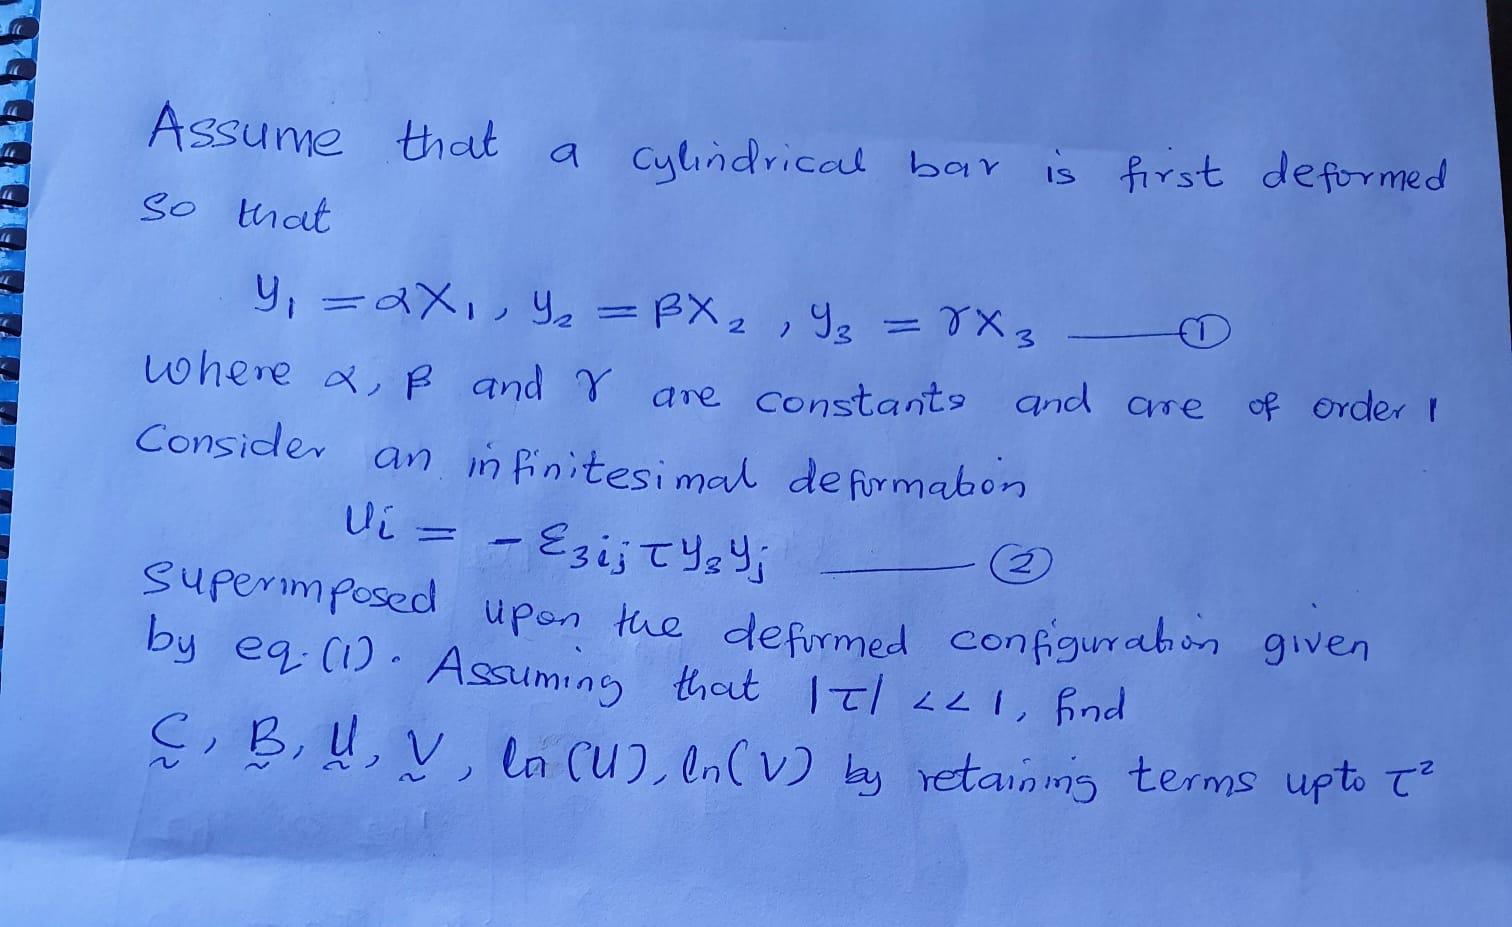 Assume that a cylindrical bar is first deformed
so that
y₁ = αX₁, y₂ = βX₂, y₃ = γX₃ —— ①
where α, β and γ are constants and are of order 1
Consider an infinitesimal deformation
ui = - ε3ij τ y₃ yj —— ②
superimposed upon the deformed configuration given
by eq. (1). Assuming that |τ| << 1, find
C, B, U, V, ln (U), ln(V) by retaining terms upto τ²